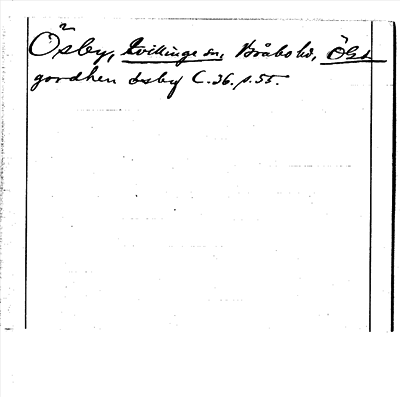 Ösby, Kvillinge sn, Bråbo hd, Ögl
gordhen øsby C. 36. s. 55.